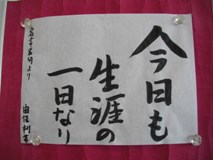 今日も
生涯の
一日なり